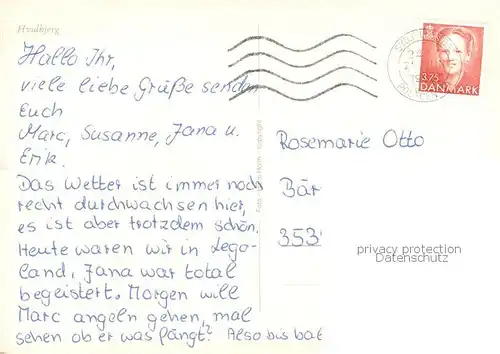 Hvidbjerg
Hallo Ihr,
viele liebe Grüße senden
Euch
Marc, Susanne, Jana u.
Erik.
Das Wetter ist immer noch
recht durchwachsen hier,
es ist aber trotzdem schön.
Heute waren wir in Lego-
land, Jana war total
begeistert. Morgen will
Marc angeln gehen, mal
sehen ob er was fängt!? Also bis bal
3.75
DANMARK
Rosemarie Otto
Bär
353
privacy protection
Datenschutz